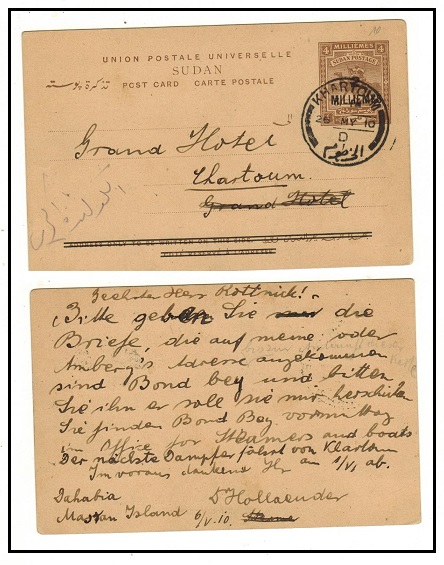 UNION POSTALE UNIVERSELLE
SUDAN
POST CARD CARTE POSTALE
4 MILLIEMES 4
SUDAN POSTAGE
MILLIEME
KHARTOUM
26 MY 10
D
الخرطوم
Grand Hotel
Chartoum.
Grand Hotel
Geehrter Herr Rottnick!
Bitte geben Sie mir die
Briefe, die auf meine oder
Amberg's Adresse angekommen
sind Bond bey und bitten
Sie ihn er soll sie mir herschicken
Sie finden Bond Bey vormittag
im Office for Steamers and boats
Der nächste Dampfer fährt von Khartoum
Im voraus dankend Ihr am 1/VI ab.
Dahabia
Dr Hollaender
Island 6/V.10.